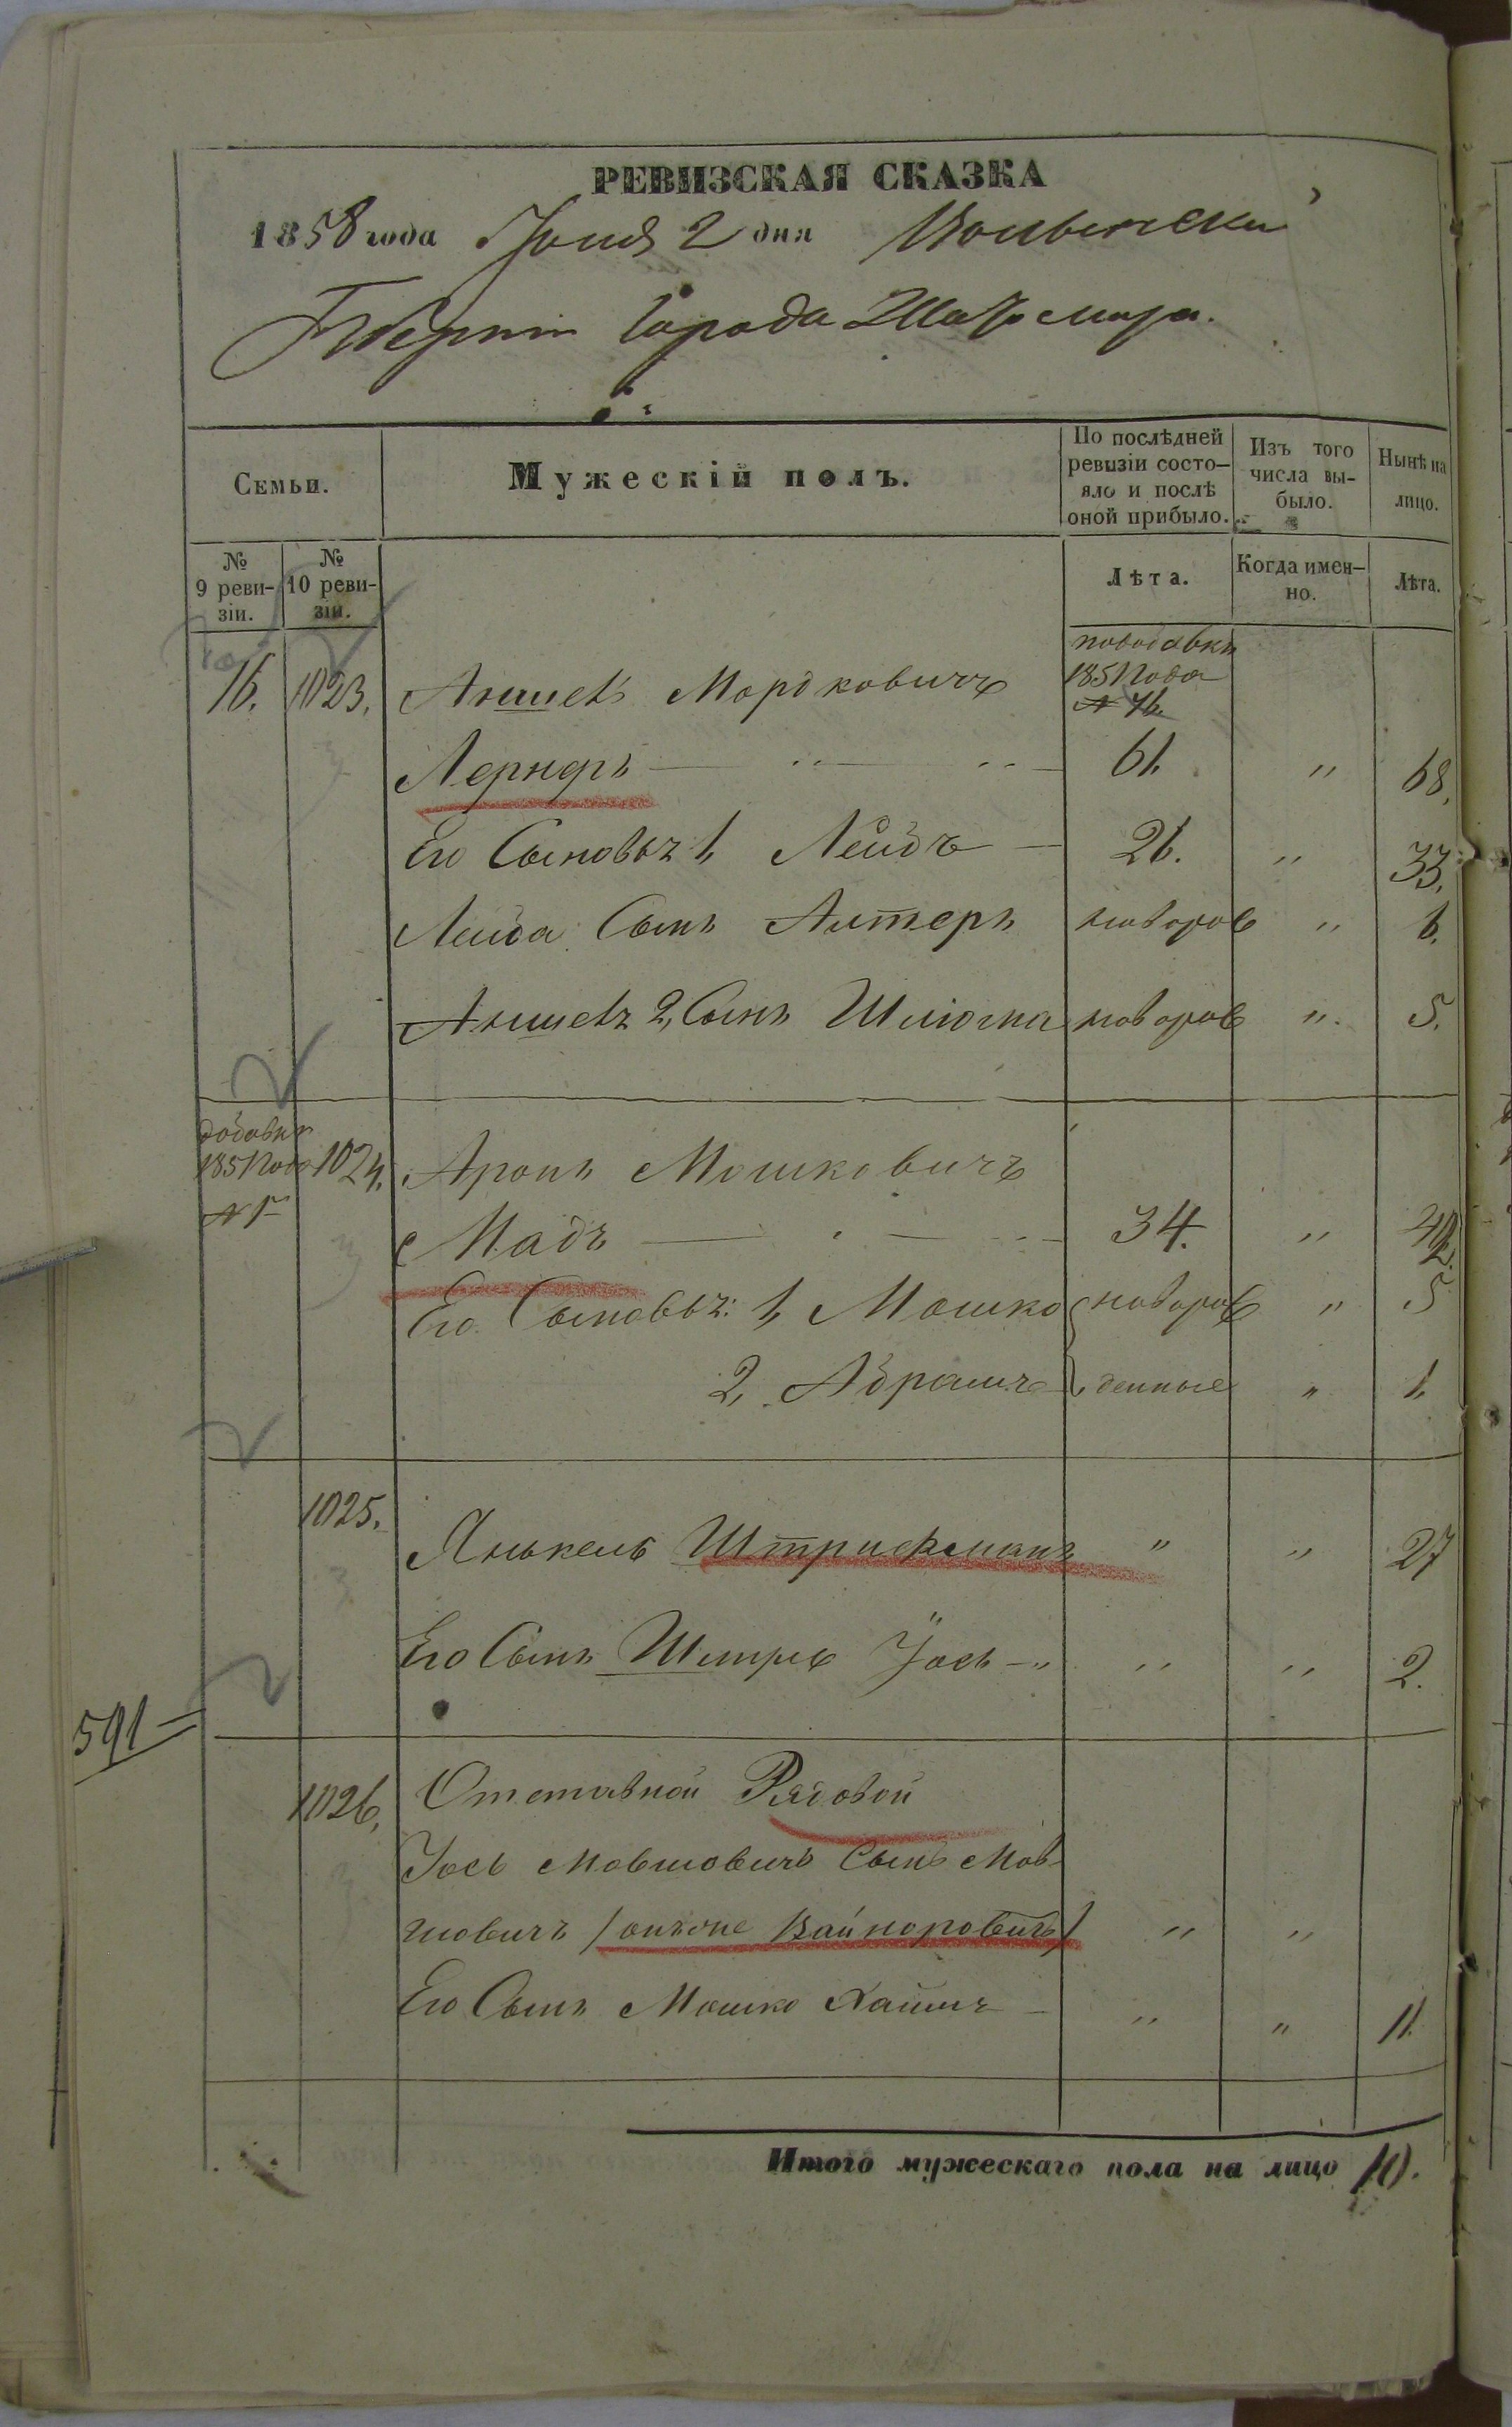 РЕВИЗСКАЯ СКАЗКА
1858 года Июня 2 дня Волынской
Губерніи Города Житомира.
Семьи.
Мужескій полъ.
По послѣдней ревизіи состо-
яло и послѣ
оной прибыло.
Изъ того
числа вы-
было.
Нынѣ на
лицо.
№
9 реви-
зіи.
№
10 реви-
зіи.
Лѣта.
Когда имен-
но.
Лѣта.
16. 1023. Аншель Мордковичъ
1851 года
№ 16.
Лернеръ 61. " 68.
Его Сыновья 1, Лейбъ 26. " 33.
Лейба Сынъ Алтеръ новорож " 6.
Аншеля 2, Сынъ Шліома новорож " 5.
добавки
1851 года
1024. Аронъ Мошковичъ
Мадъ 34. " 42.
Его Сыновья: 1, Мошко новорож " 5
2, Абрамъ денные " 1.
1025.
Янькель " " 27
Его Сынъ Шмерко Іось " " " 2.
591
1026. Отставной Рядовой
Іось Мовшовичъ Сынъ Мов-
шовичъ / онъ же Вайноровичъ / " "
Его Сынъ Мошко Хаимъ " " 11.
Итого мужескаго пола на лицо 10.